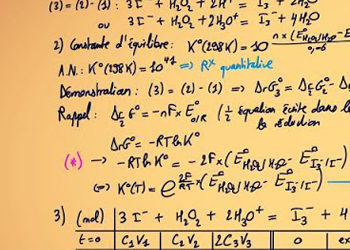 (3) = (2) - (1) : 3I⁻ + H₂O₂ + 2H⁺ = I₃⁻ + 2H₂O
ou 3I⁻ + H₂O₂ + 2H₃O⁺ = I₃⁻ + 4H₂O
2) Constante d'équilibre : K°(298K) = 10^ n×(E°H₂O₂/H₂O - E° / 0,06
A.N. : K°(298K) = 10⁴¹ ⇒ Rˣ quantitative
Démonstration : (3) = (2) - (1) ⇒ ΔrG₃° = Δ½G₂° -
Rappel : Δ½G° = -nF×E°O/R (½ équation écrite dans le
la réduction
ΔrG° = -RT ln K°
(*) → -RT ln K° = -2F×(E°H₂O₂/H₂O - E°I₃⁻/I⁻)
⇔ K°(T) = e^ 2F/RT ×(E°H₂O₂/H₂O - E°I₃⁻/I⁻)
3) (mol) 3I⁻ + H₂O₂ + 2H₃O⁺ = I₃⁻ + 4
t=0 C₁V₁ C₂V₂ 2C₃V₃ 0 ex